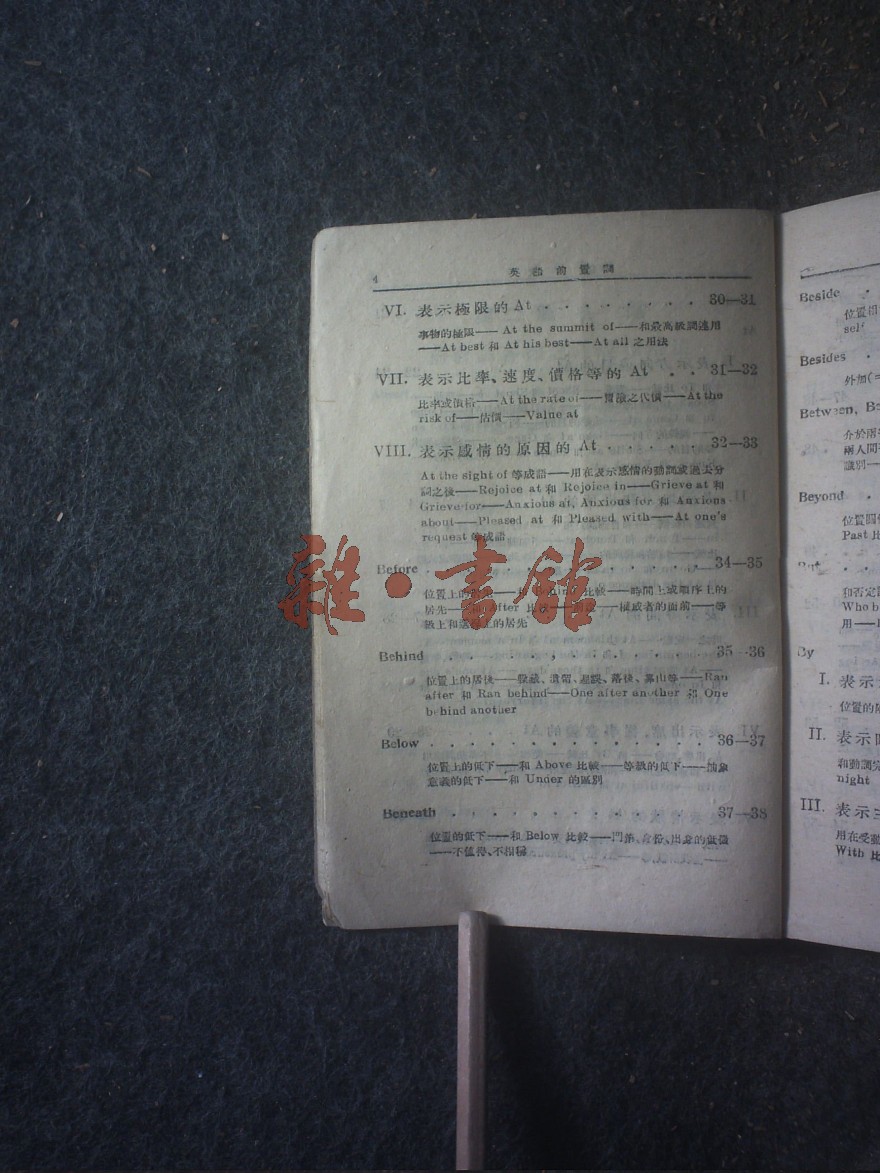 4
英語前置詞
VI. 表示極限的 At . . . . . . . . 30—31
事物的極限—— At the summit of——和最高級詞連用
——At best 和 At his best——At all 之用法
VII. 表示比率、速度、價格等的 At . . 31—32
比率或價格——At the rate of——冒險之代價——At the
risk of——估價——Value at
VIII. 表示感情的原因的 At . . . . . . 32—33
At the sight of 等成語——用在表示感情的動詞或過去分
詞之後——Rejoice at 和 Rejoice in——Grieve at 和
Grieve for——Anxious at, Anxious for 和 Anxious
about——Pleased at 和 Pleased with——At one's
request 等成語
Before . . . . . . . . . . . . . . 34—35
位置上的 Behind 比較——時間上或順序上的
居先—— After 權威者的面前——等
級上和選擇上的居先
Behind . . . . . . . . . . . 35—36
位置上的居後——躲藏、遺留、落後、靠山等——Ran
after 和 Ran behind——One after another 和 One
behind another
Below . . . . . . . . . . . . . 36—37
位置上的低下——和 Above 比較——等級的低下——抽象
意義的低下——和 Under 的區別
Beneath . . . . . . . . . . . 37—38
位置的低下——和 Below 比較——門第、身份、出身的低微
——不值得、不相稱
Beside
位置
self
Besides
外加(=
Between,
介於兩
兩人間
識別—
Beyond
位置關
Past 比
But
和否定
Who b
用——
By
I. 表示
位置的
II. 表示
和動詞完
night
III. 表示
用在受動
With 比
雜·書館